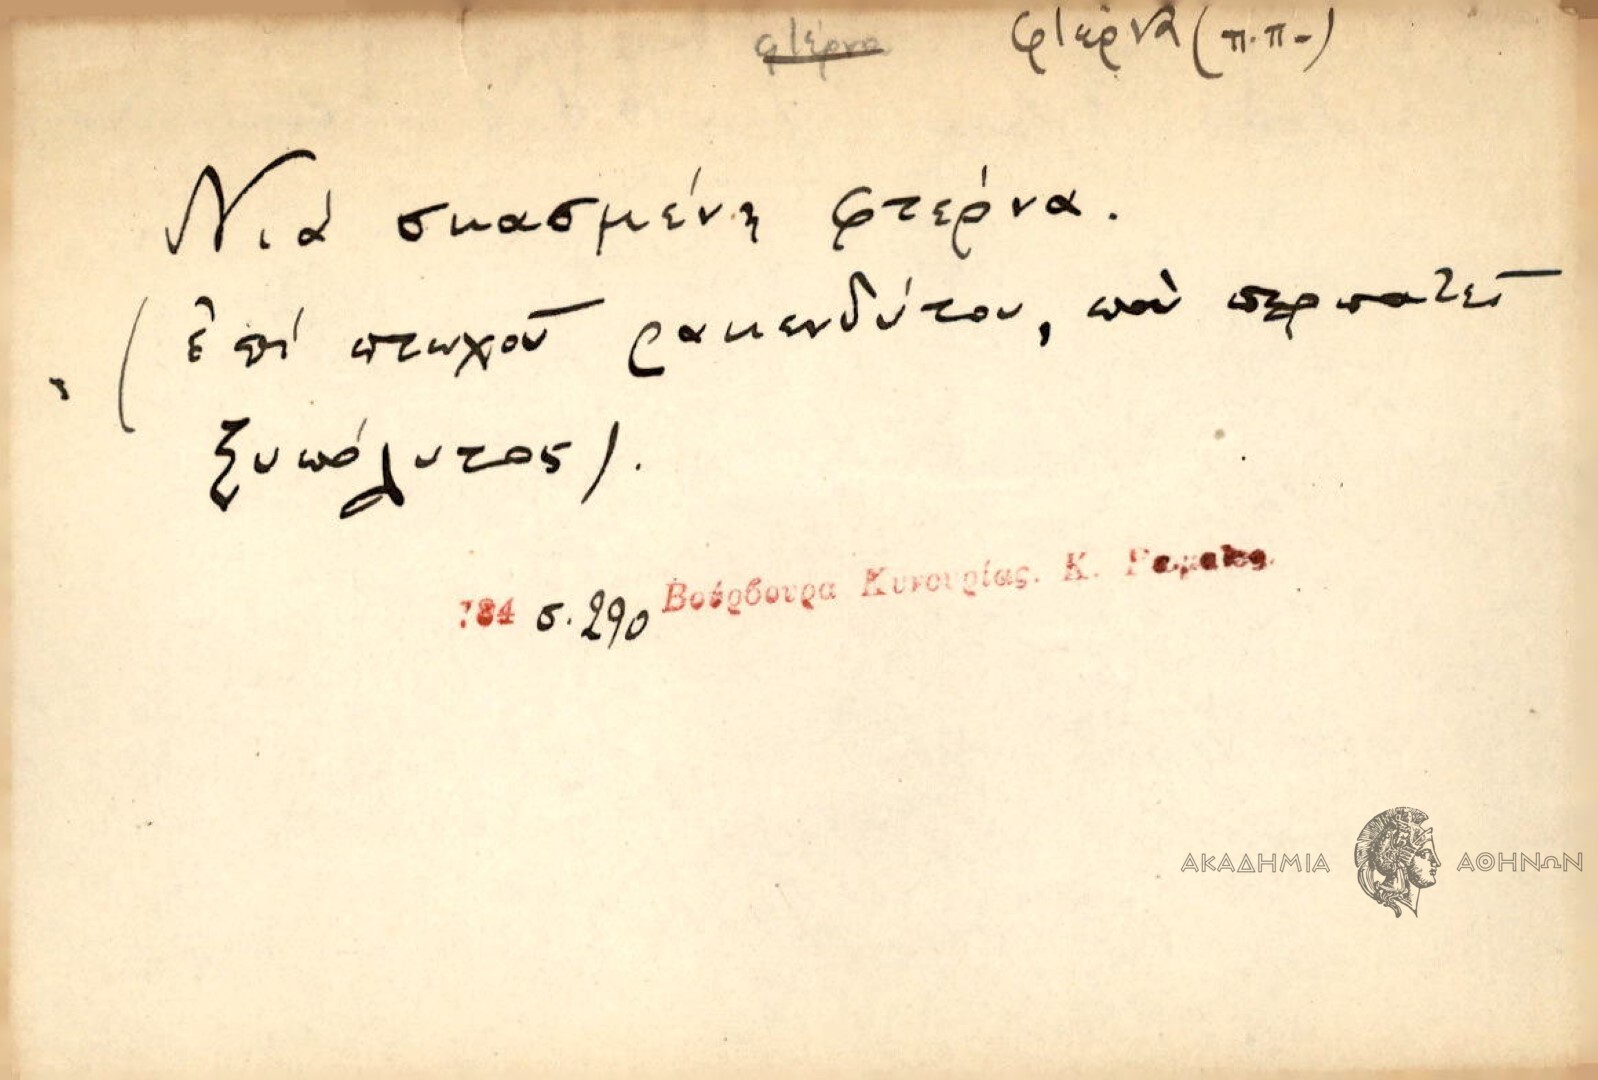 φτέρνα φτέρνα (π.π-)
Νιά σκασμένη φτέρνα.
(ἐπί πτωχοῦ ρακενδύτου, πού περπατεῖ
ξυπόλυτος).
784 σ. 290 Βούρβουρα Κυνουρίας. Κ. Ρωμαῖος
ΑΚΑΔΗΜΙΑ ΑΘΗΝΩΝ